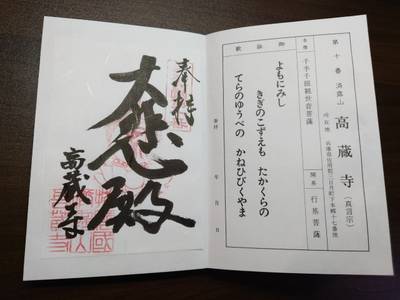 第十番 済露山 高蔵寺 (真言宗)
所在地 兵庫県佐用郡三日月町下本郷十七番地
本尊 千手千眼観世音菩薩
開基 行基菩薩
御詠歌
よもにみし
きぎのこずえも たかくらの
てらのゆうべの かねひびくやま
参拝 年 月 日
奉拝
大悲殿
高蔵寺